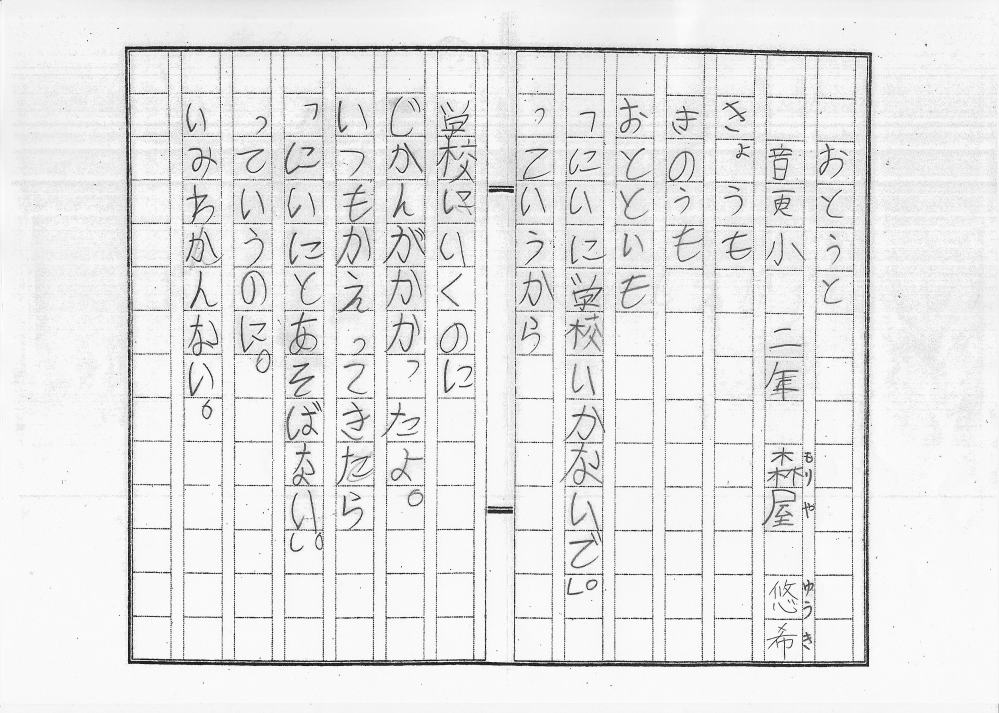 おとうと
音更小 二年 森屋 悠希
もりや ゆうき
きょうも
きのうも
おとといも
「にいに学校いかないで。」
っていうから
学校にいくのに
じかんがかかったよ。
いつもかえってきたら
「にいにとあそばない。」
っていうのに。
いみわかんない。